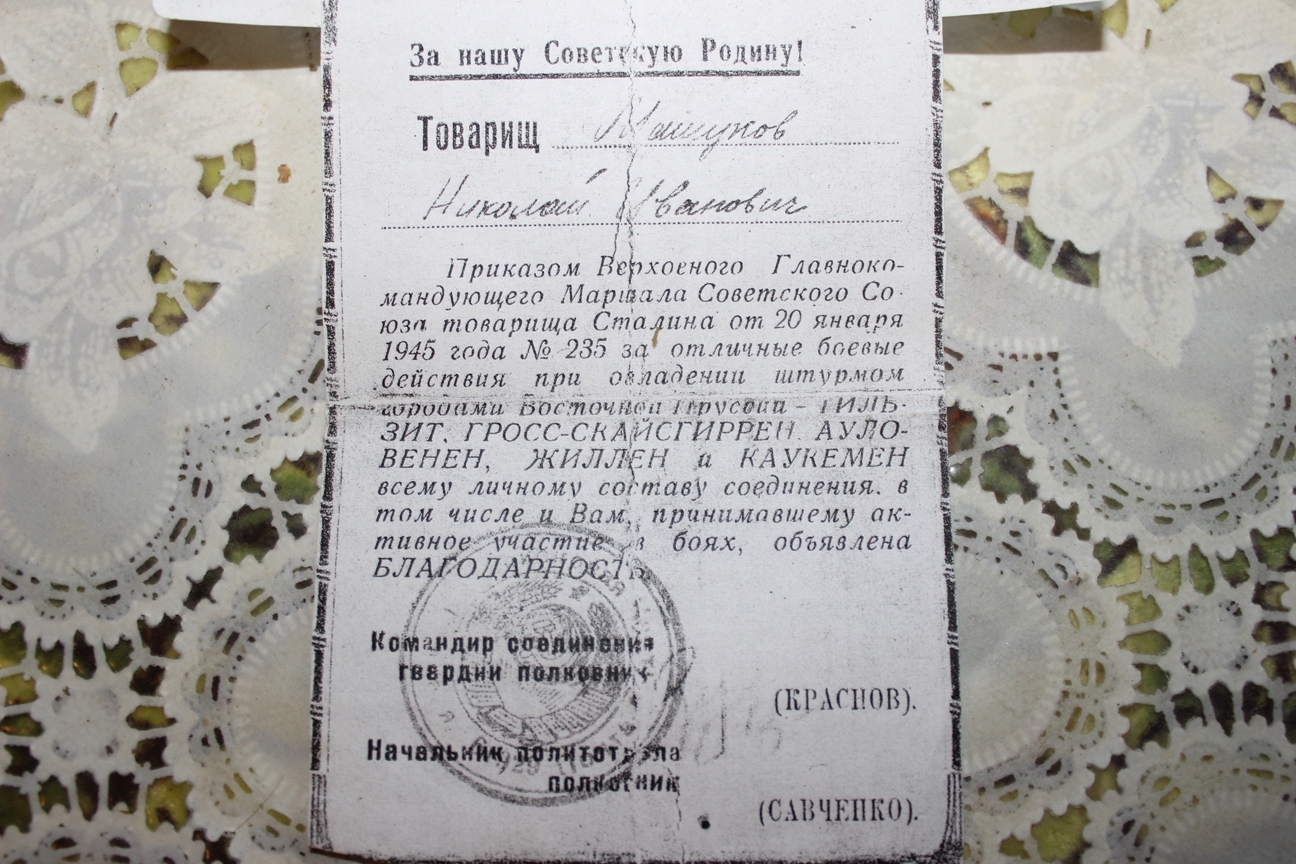 За нашу Советскую Родину!
Товарищ Машуков
Николай Иванович
Приказом Верховного Главноко-
мандующего Маршала Советского Со-
юза товарища Сталина от 20 января
1945 года № 235 за отличные боевые
действия при овладении штурмом
городами Восточной Пруссии – ТИЛЬ-
ЗИТ, ГРОСС-СКАЙСГИРРЕН, АУЛО-
ВЕНЕН, ЖИЛЛЕН и КАУКЕМЕН
всему личному составу соединения, в
том числе и Вам, принимавшему ак-
тивное участие в боях, объявлена
БЛАГОДАРНОСТЬ
Командир соединения
гвардии полковник
(КРАСНОВ).
Начальник политотдела
полковник
(САВЧЕНКО).